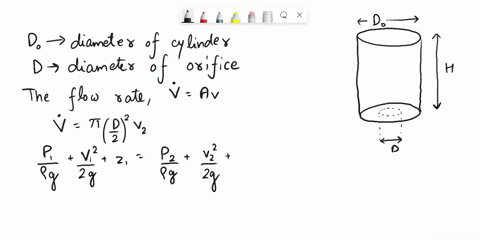 D₀ → diameter of cylinder
D → diameter of orifice
The flow rate, V̇ = Av
V̇ = π(D/2)² v₂
P₁/ρg + V₁²/2g + z₁ = P₂/ρg + v₂²/2g +
← D₀ →
H
D